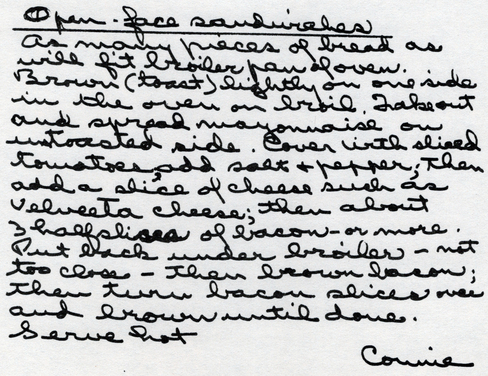 Open-face sandwiches
As many pieces of bread as
will fit broiler pan of oven.
Brown (toast) lightly on one side
in the oven on broil. Take out
and spread mayonnaise on
untoasted side. Cover with sliced
tomatoes, add salt + pepper; then
add a slice of cheese such as
Velveeta cheese; then about
3 half slices of bacon - or more.
Put back under broiler - not
too close - then brown bacon;
then turn bacon slices over
and brown until done.
Serve hot
Connie